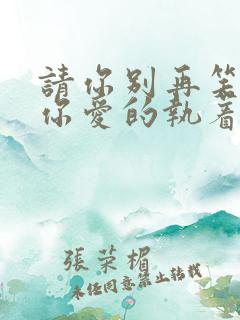 請你別再笨
你愛的執著
張榮楣
未任同意禁止转载